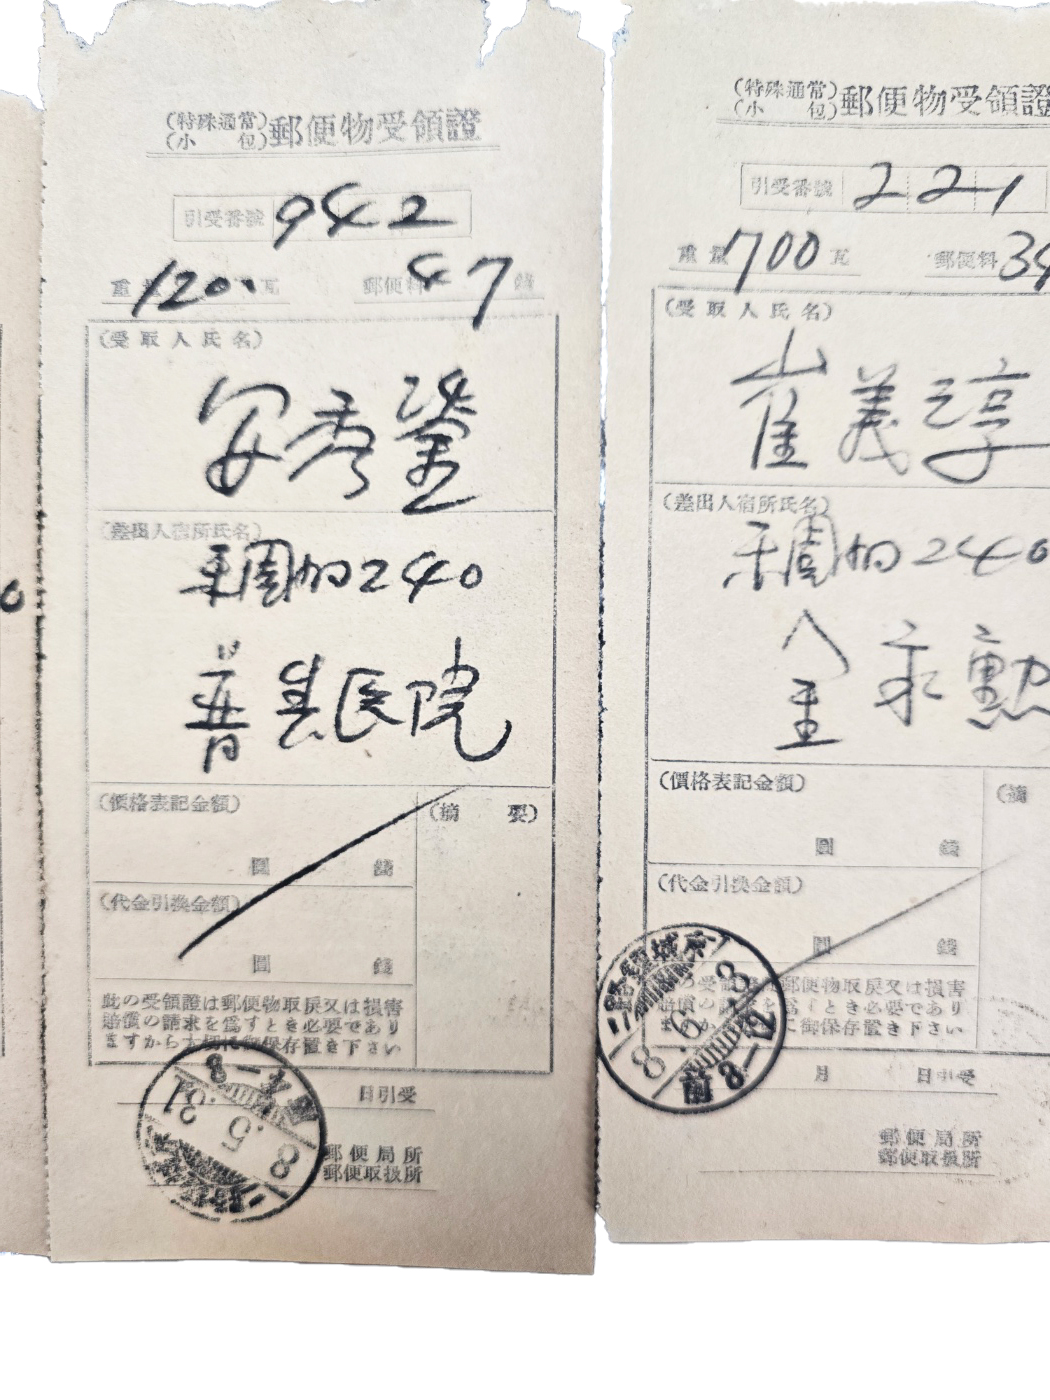 (特殊通常)
(小 包)
郵便物受領證
引受番號 942
重量 120 瓦 郵便料 47 錢
(受取人氏名)
安秀鎣
(差出人宿所氏名)
240
普惠医院
(價格表記金額)
(摘 要)
圓 錢
(代金引換金額)
圓 錢
此の受領證は郵便物取戻又は損害
賠償の請求を爲すとき必要であり
ますから大切に御保存置き下さい
日引受
郵便局所
郵便取扱所
8
.5
.31
(特殊通常)
(小 包)
郵便物受領證
引受番號 221
重量 700 瓦 郵便料
(受取人氏名)
崔義淳
(差出人宿所氏名)
240
金永勳
(價格表記金額)
(摘
圓 錢
(代金引換金額)
圓 錢
郵便物取戻又は損害
賠償の請求を爲すとき必要であり
に御保存置き下さい
月 日引受
郵便局所
郵便取扱所